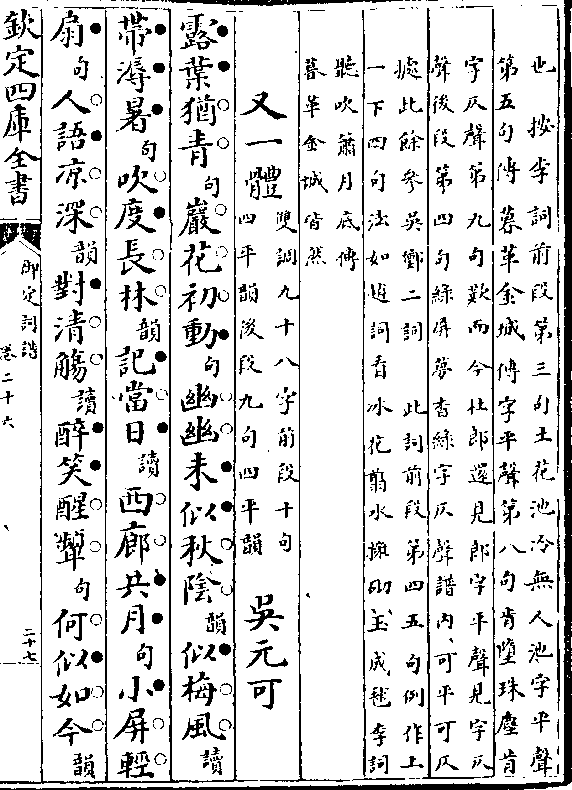 也　按李詞前段第三句土花池冷無人池字平聲
第五句傅暮革金城傅字平聲第八句肯墮珠塵肯
字仄聲第九句歎而今杜郎還見郎字平聲見字仄
聲後段第四句綠屏夢杳綠字仄聲譜內可平可仄
據此餘參吳鄧二詞　此詞前段第四五句例作上
一下四句法如趙詞看冰花翦水擁砌玉成毬李詞
聽吹簫月底傅
暮革金城皆然
又一體　雙調九十八字前段十句四平韻後段九句四平韻　吳元可
露葉猶青句巖花初動句幽幽未似秋陰韻似梅風讀
帶溽暑句吹度長林韻記當日讀西廊共月句小屏輕
扇句人語凉深韻對清觴讀醉笑醒顰句何似如今韻
欽定四庫全書
御定詞譜
卷二十六
二十七